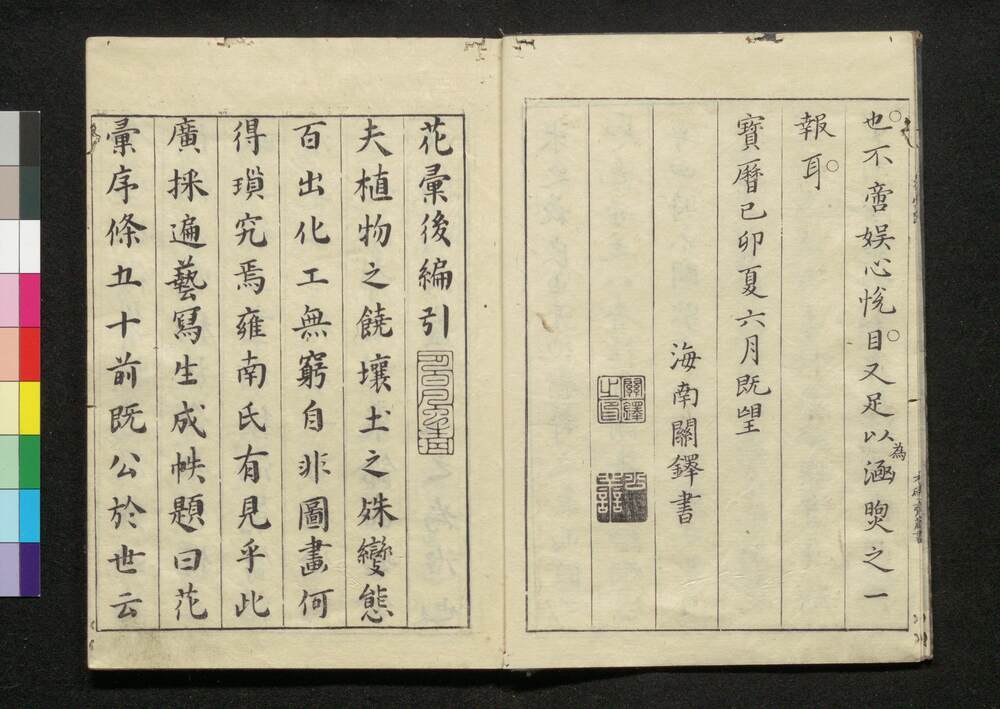 也不啻娯心悦目又足以為涵煦之一
報耳
寶曆己卯夏六月既望
海南關鐸書
花彙後編引
夫植物之饒壤土之殊變態
百出化工無窮自非圖畫何
得瑣究焉雍南氏有見乎此
廣採遍藝寫生成帙題曰花
彙序條五十前既公於世云